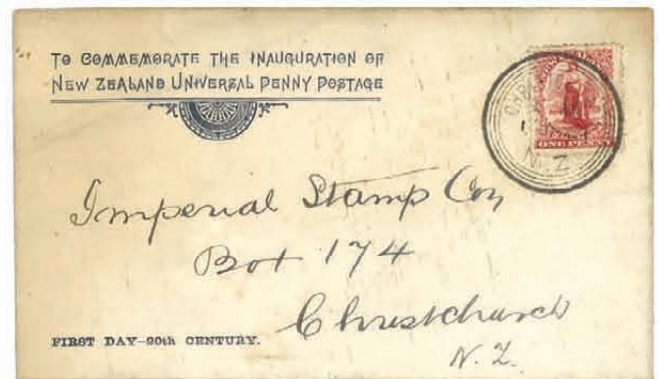 TO COMMEMORATE THE INAUGURATION OF
NEW ZEALAND UNIVERSAL PENNY POSTAGE
ONE PENNY
N.Z
Imperial Stamp Coy
Box 174
Christchurch
N.Z.
FIRST DAY—20th CENTURY.